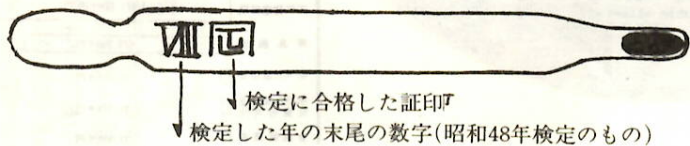 VIII 正
検定に合格した証印
検定した年の末尾の数字(昭和48年検定のもの)